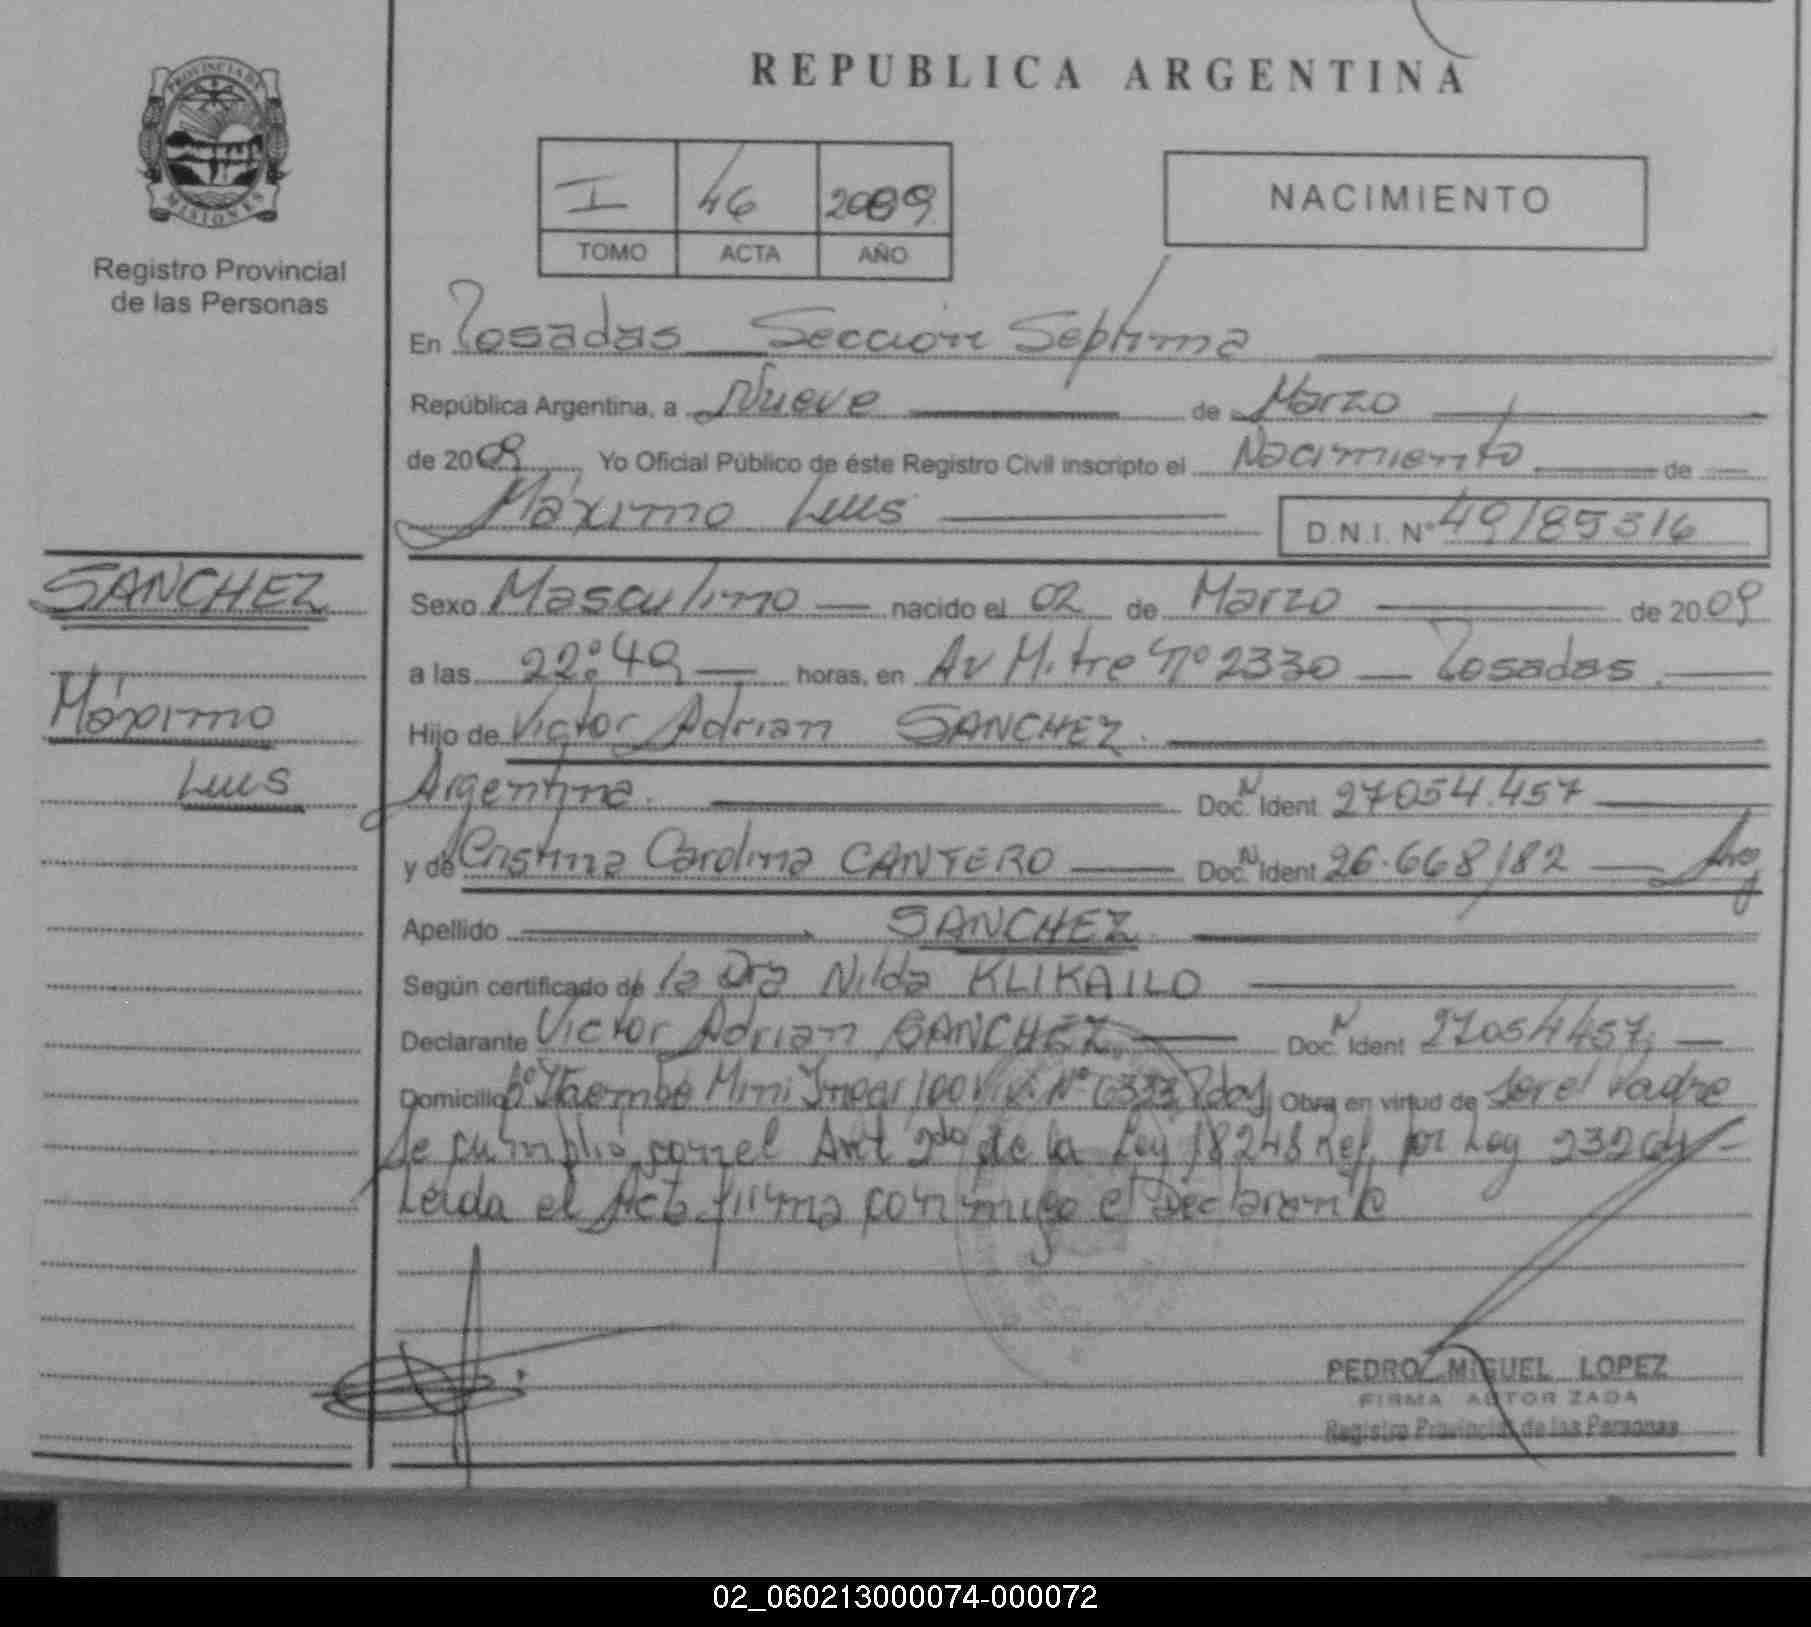 PROVINCIA DE
MISIONES
Registro Provincial
de las Personas
REPUBLICA ARGENTINA
I 46 2009
TOMO ACTA AÑO
NACIMIENTO
En Posadas Sección Séptima
República Argentina, a Nueve de Marzo
de 2009, Yo Oficial Público de éste Registro Civil inscripto el Nacimiento de
Máximo Luis D.N.I. Nº 49185316
SANCHEZ
Máximo
Luis
Sexo Masculino nacido el 02 de Marzo de 2009
a las 22:49 horas, en Av Mitre Nº 2330 Posadas
Hijo de Victor Adrian SANCHEZ.
Argentina. Doc. N Ident 27054.457
y de Cristina Carolina CANTERO Doc. N Ident 26.668182 Arg
Apellido SANCHEZ
Según certificado de la Dra Nilda KLIKAILO
Declarante Victor Adrian SANCHEZ Doc. N Ident 27054457
Domicilio Bº Mini 100 Viv. Nº Obra en virtud de ser el Padre
Se cumplió con el Art 2do de la Ley 18248 Ref. por Ley 23264
Leída el Acta firma conmigo el Declarante
PEDRO MIGUEL LOPEZ
FIRMA AUTORIZADA
Registro Provincial de las Personas
02_060213000074-000072